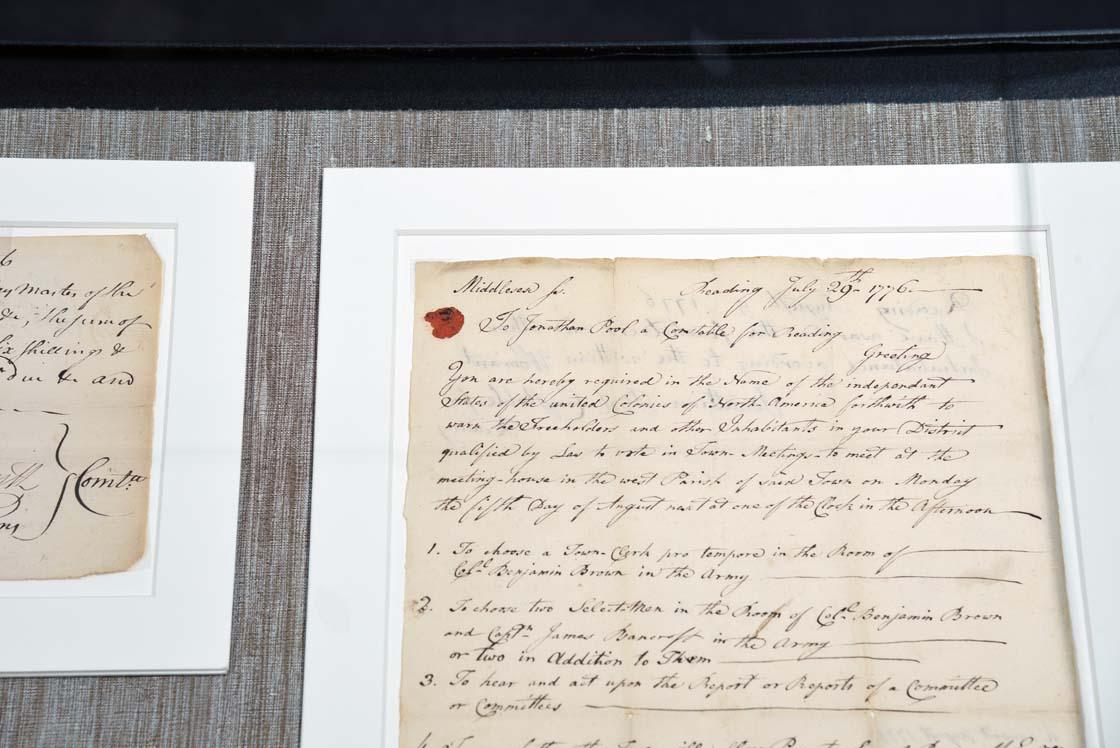 6
Master of the
&c, the sum of
Six shillings &
due &c and
Comtee
Middlesex ss.
Reading July 29th 1776
To Jonathan Pool a Constable for Reading
Greeting
You are hereby required in the Name of the independant
States of the united Colonies of North America forthwith to
warn the Freeholders and other Inhabitants in your District
qualified by Law to vote in Town-Meetings to meet at the
meeting-house in the west Parish of said Town on Monday
the fifth Day of August next at one of the Clock in the Afternoon
1. To choose a Town-Clerk pro tempore in the Room of
Colº Benjamin Brown in the Army
2. To choose two Select-Men in the Room of Colº Benjamin Brown
and Captn James Bancroft in the Army
or two in Addition to Them
3. To hear and act upon the Report or Reports of a Committee
or Committees